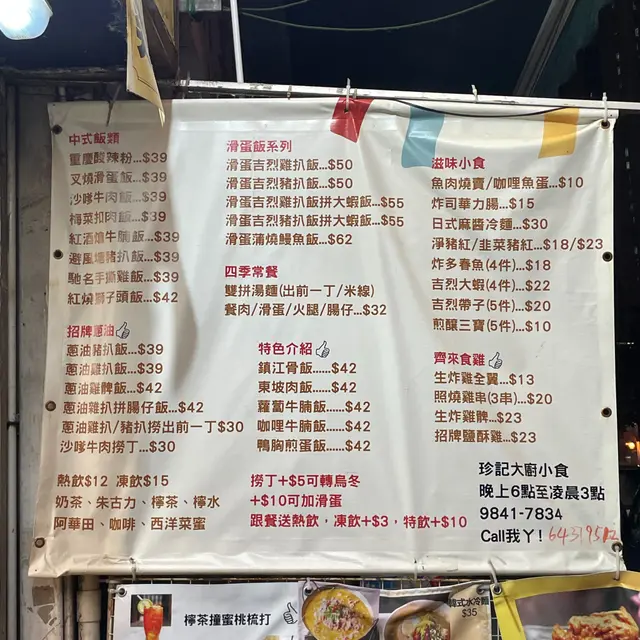 中式飯類
重慶酸辣粉...$39
叉燒滑蛋飯...$39
沙嗲牛肉飯...$39
梅菜扣肉飯...$39
紅酒燴牛腩飯...$39
避風塘豬扒飯...$39
馳名手撕雞飯...$39
紅燒獅子頭飯...$42
招牌蔥油
蔥油豬扒飯...$39
蔥油雞扒飯...$39
蔥油雞髀飯...$42
蔥油雞扒拼腸仔飯...$42
蔥油雞扒/豬扒撈出前一丁$30
沙嗲牛肉撈丁...$30
熱飲$12 凍飲$15
奶茶、朱古力、檸茶、檸水
阿華田、咖啡、西洋菜蜜
滑蛋飯系列
滑蛋吉烈雞扒飯...$50
滑蛋吉烈豬扒飯...$50
滑蛋吉烈雞扒飯拼大蝦飯...$55
滑蛋吉烈豬扒飯拼大蝦飯...$55
滑蛋蒲燒鰻魚飯...$62
四季常餐
雙拼湯麵(出前一丁/米線)
餐肉/滑蛋/火腿/腸仔...$32
特色介紹
鎮江骨飯......$42
東坡肉飯......$42
蘿蔔牛腩飯...$42
咖哩牛腩飯...$42
鴨胸煎蛋飯...$42
撈丁+$5可轉烏冬
+$10可加滑蛋
跟餐送熱飲，凍飲+$3，特飲+$10
滋味小食
魚肉燒賣/咖哩魚蛋...$10
炸司華力腸...$15
日式麻醬冷麵...$30
淨豬紅/韭菜豬紅...$18/$23
炸多春魚(4件)...$18
吉烈大蝦(4件)...$22
吉烈帶子(5件)...$20
煎釀三寶(5件)...$10
齊來食雞
生炸雞全翼...$13
照燒雞串(3串)...$20
生炸雞髀...$23
招牌鹽酥雞...$23
珍記大廚小食
晚上6點至凌晨3點
9841-7834
Call我丫!
檸茶撞蜜桃梳打
韓式水冷麵
$35